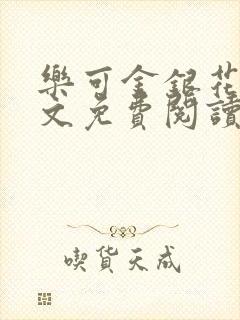 樂可金銀花
文免費閱讀
喫貨天成